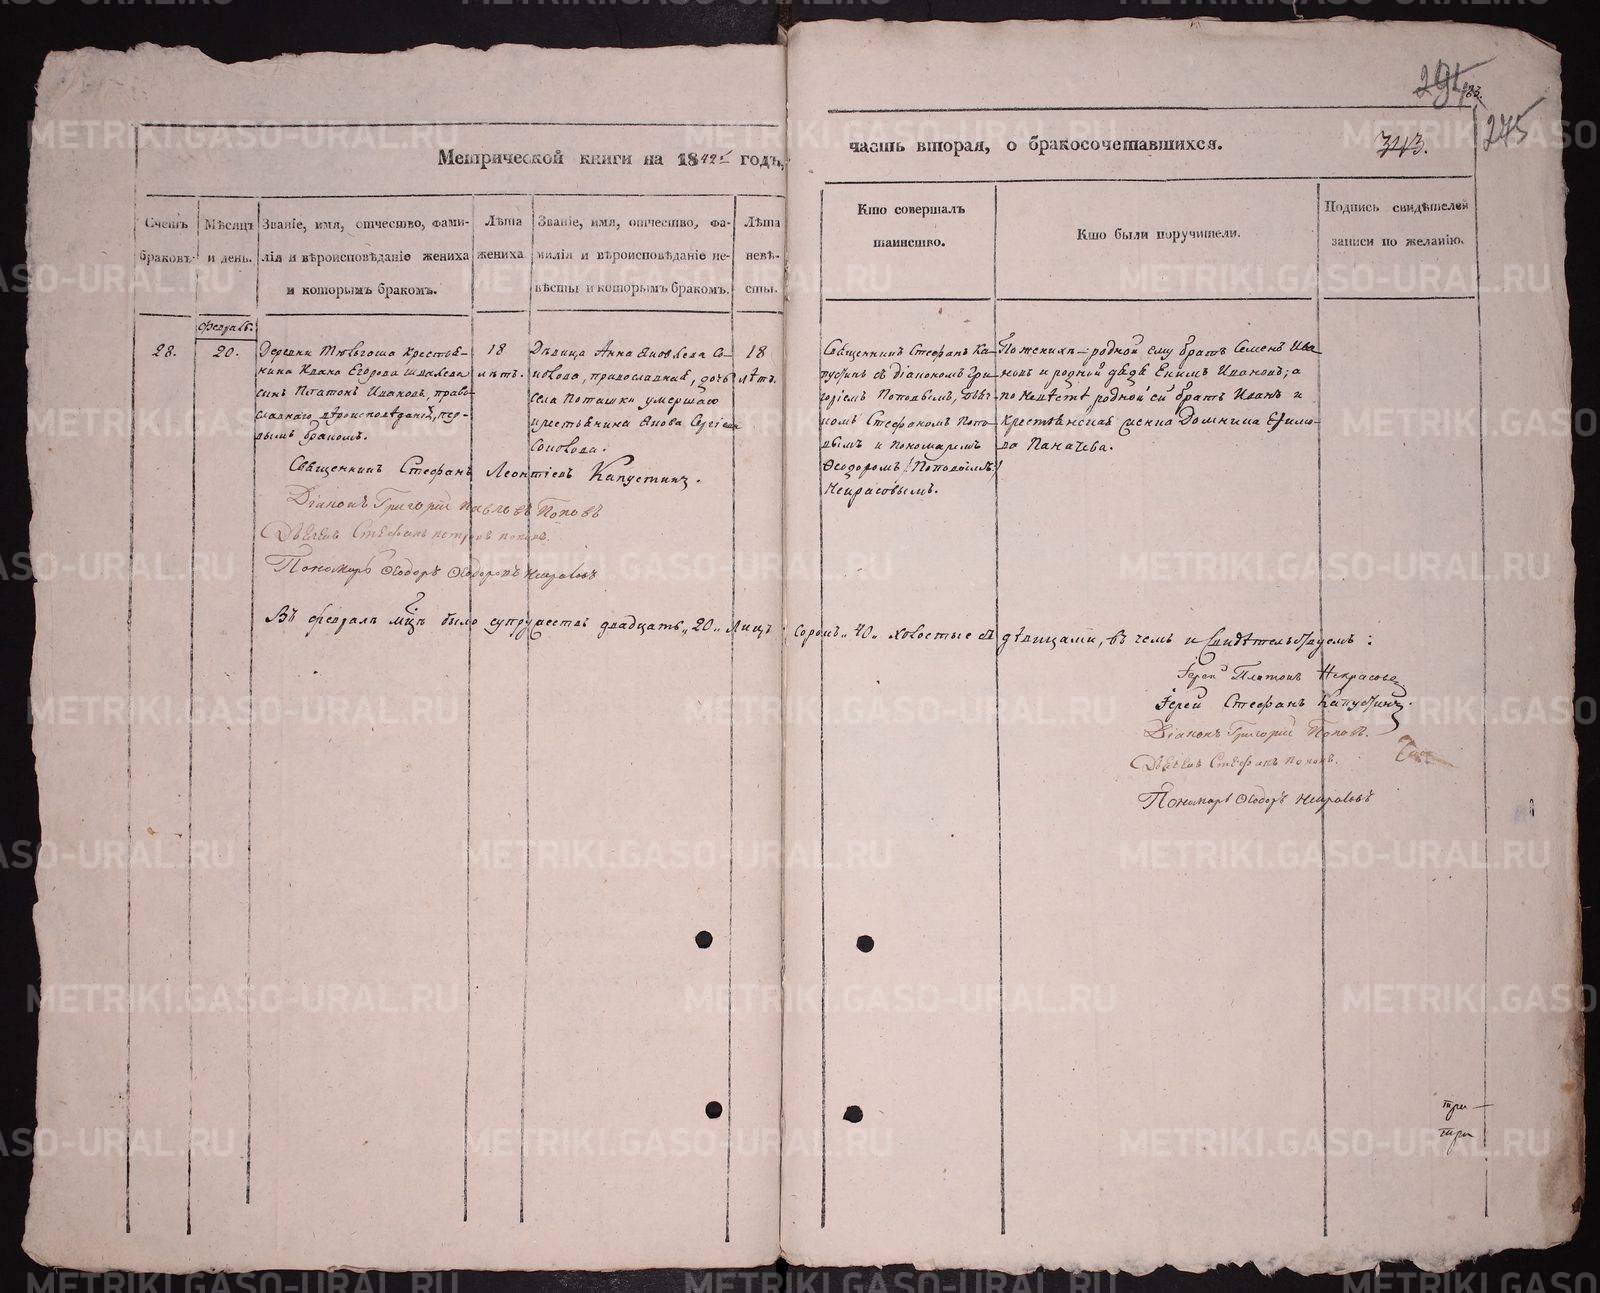 291
245
Метрической книги на 1842й годъ,
часть вторая, о бракосочетавшихся.
343.
Счетъ
браковъ.
Мѣсяцъ
и день.
Званіе, имя, отчество, фами-
лія и вѣроисповѣданіе жениха
и которымъ бракомъ.
Лѣта
жениха.
Званіе, имя, отчество, фа-
милія и вѣроисповѣданіе не-
вѣсты и которымъ бракомъ.
Лѣта
невѣ-
сты.
Кто совершалъ
таинство.
Кто были поручители.
Подпись свидѣтелей
записи по желанію.
Февраль.
28.
20.
Деревни крестья-
нина Ивана Егорова
сынъ Платонъ Ивановъ, право-
славнаго вѣроисповѣданія, пер-
вымъ бракомъ.
18
лѣтъ.
Дѣвица Анна Яковлева Со-
православная, дочь
села Поташки умершаго
крестьянина Якова Сергіева
18
лѣтъ.
Священникъ Стефанъ Ка-
пустинъ съ діакономъ Гри-
горіемъ Поповымъ, дьяч-
комъ Стефаномъ Попо-
вымъ и пономаремъ
Ѳеодоромъ (Поповымъ)
Некрасовымъ.
По женихѣ – родной ему братъ Семенъ Ива-
новъ и родной дядя Екимъ Ивановъ; а
по невѣстѣ родной ей братъ Иванъ и
крестьянская женка Домнина Ефимо-
ва Паначева.
Священникъ Стефанъ Леонтіевъ Капустинъ.
Діаконъ Григорій Павловъ Поповъ
Дьячекъ Стефанъ Петровъ Поповъ.
Пономарь Ѳеодоръ Ѳеодоровъ Некрасовъ
Въ февралѣ мцѣ было супружествъ двадцать „20„ лицъ сорокъ „40„ холостые съ дѣвицами, въ чемъ и свидѣтельствуемъ:
Іерей Платонъ Некрасовъ
Іерей Стефанъ Капустинъ.
Діаконъ Григорій Поповъ.
Дьячекъ Стефанъ Поповъ.
Пономарь Ѳеодоръ Некрасовъ
три
три
METRIKI.GASO-URAL.RU